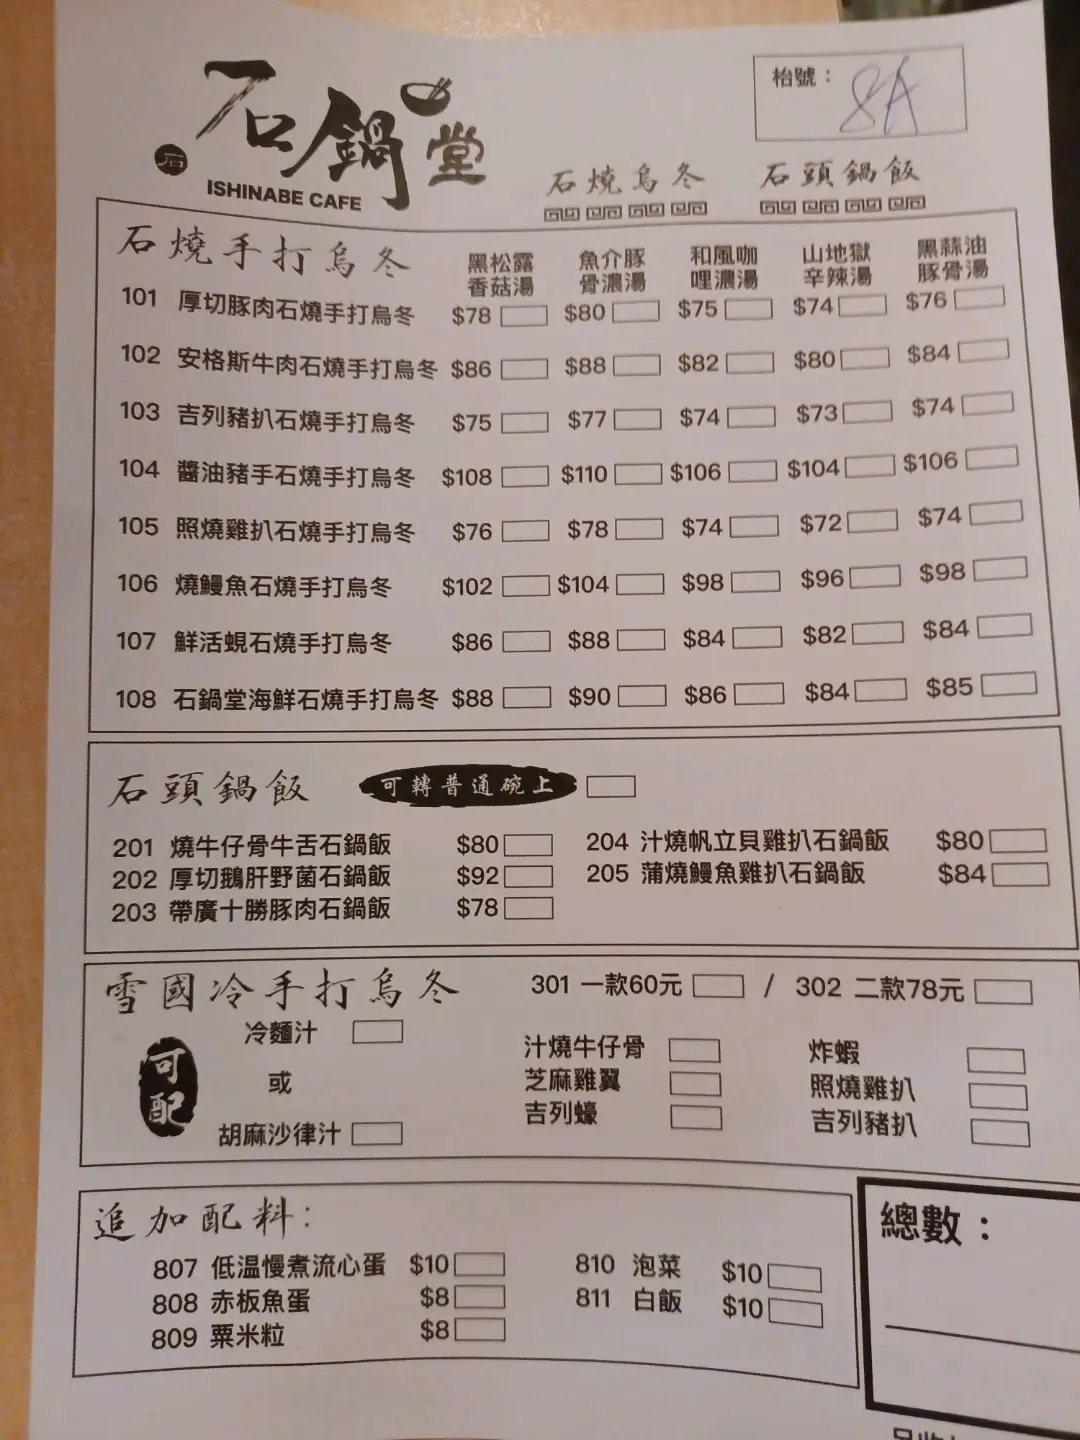 石鍋堂
石
ISHINABE CAFE
枱號： 8A
石燒烏冬 石頭鍋飯
石燒手打烏冬 黑松露香菇湯 魚介豚骨濃湯 和風咖哩濃湯 山地獄辛辣湯 黑蒜油豚骨湯
101 厚切豚肉石燒手打烏冬 $78 $80 $75 $74 $76
102 安格斯牛肉石燒手打烏冬 $86 $88 $82 $80 $84
103 吉列豬扒石燒手打烏冬 $75 $77 $74 $73 $74
104 醬油豬手石燒手打烏冬 $108 $110 $106 $104 $106
105 照燒雞扒石燒手打烏冬 $76 $78 $74 $72 $74
106 燒鰻魚石燒手打烏冬 $102 $104 $98 $96 $98
107 鮮活蜆石燒手打烏冬 $86 $88 $84 $82 $84
108 石鍋堂海鮮石燒手打烏冬 $88 $90 $86 $84 $85
石頭鍋飯 可轉普通碗上
201 燒牛仔骨牛舌石鍋飯 $80 204 汁燒帆立貝雞扒石鍋飯 $80
202 厚切鵝肝野菌石鍋飯 $92 205 蒲燒鰻魚雞扒石鍋飯 $84
203 帶廣十勝豚肉石鍋飯 $78
雪國冷手打烏冬 301 一款60元 / 302 二款78元
可配
冷麵汁
或
胡麻沙律汁
汁燒牛仔骨 炸蝦
芝麻雞翼 照燒雞扒
吉列蠔 吉列豬扒
追加配料：
807 低温慢煮流心蛋 $10 810 泡菜 $10
808 赤板魚蛋 $8 811 白飯 $10
809 粟米粒 $8
總數：